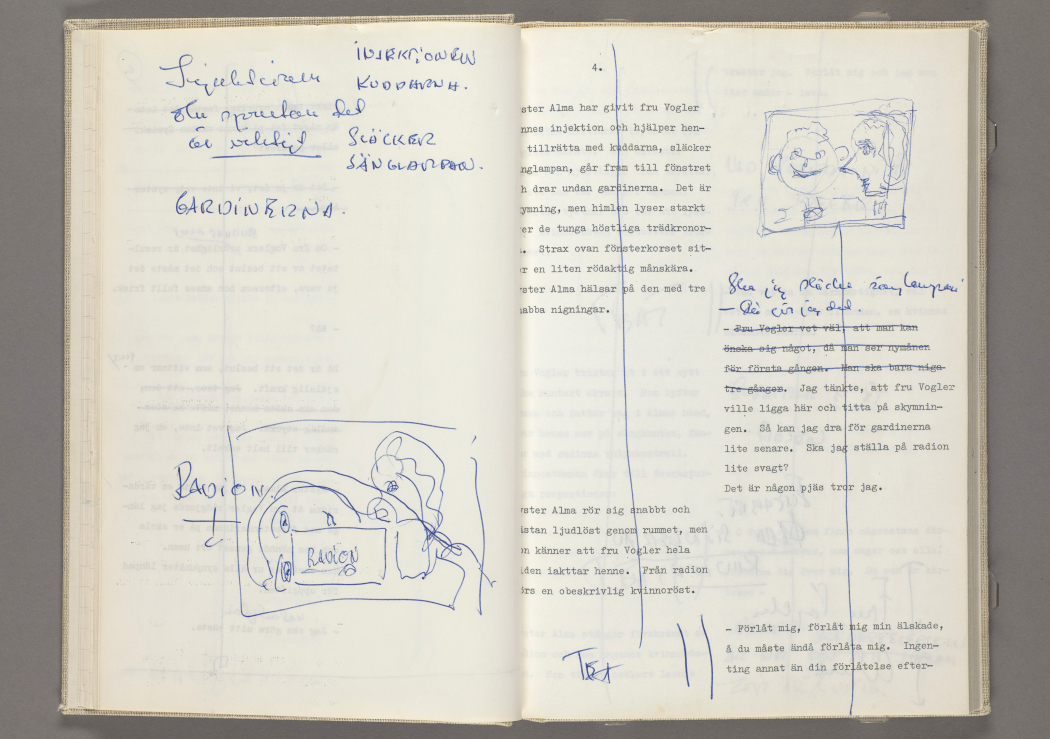 Injektionen
INJEKTIONEN
KUDDARNA.
Nu sprutan det
är viktigt
SLÄCKER
SÄNGLAMPAN.
GARDINERNA.
RADION.
RADION
4.
ster Alma har givit fru Vogler
nnes injektion och hjälper hen-
tillrätta med kuddarna, släcker
nglampan, går fram till fönstret
h drar undan gardinerna. Det är
ymning, men himlen lyser starkt
er de tunga höstliga trädkronor-
. Strax ovan fönsterkorset sit-
r en liten rödaktig månskära.
ster Alma hälsar på den med tre
abba nigningar.
Ska jag släcka sänglampan
- Då gör jag det.
- Fru Vogler vet väl, att man kan
önska sig något, då man ser nymånen
för första gången. Man ska bara niga
tre gånger. Jag tänkte, att fru Vogler
ville ligga här och titta på skymnin-
gen. Så kan jag dra för gardinerna
lite senare. Ska jag ställa på radion
lite svagt?
Det är någon pjäs tror jag.
ster Alma rör sig snabbt och
stan ljudlöst genom rummet, men
n känner att fru Vogler hela
den iakttar henne. Från radion
rs en obeskrivlig kvinnoröst.
- Förlåt mig, förlåt mig min älskade,
å du måste ändå förlåta mig. Ingen-
ting annat än din förlåtelse efter-